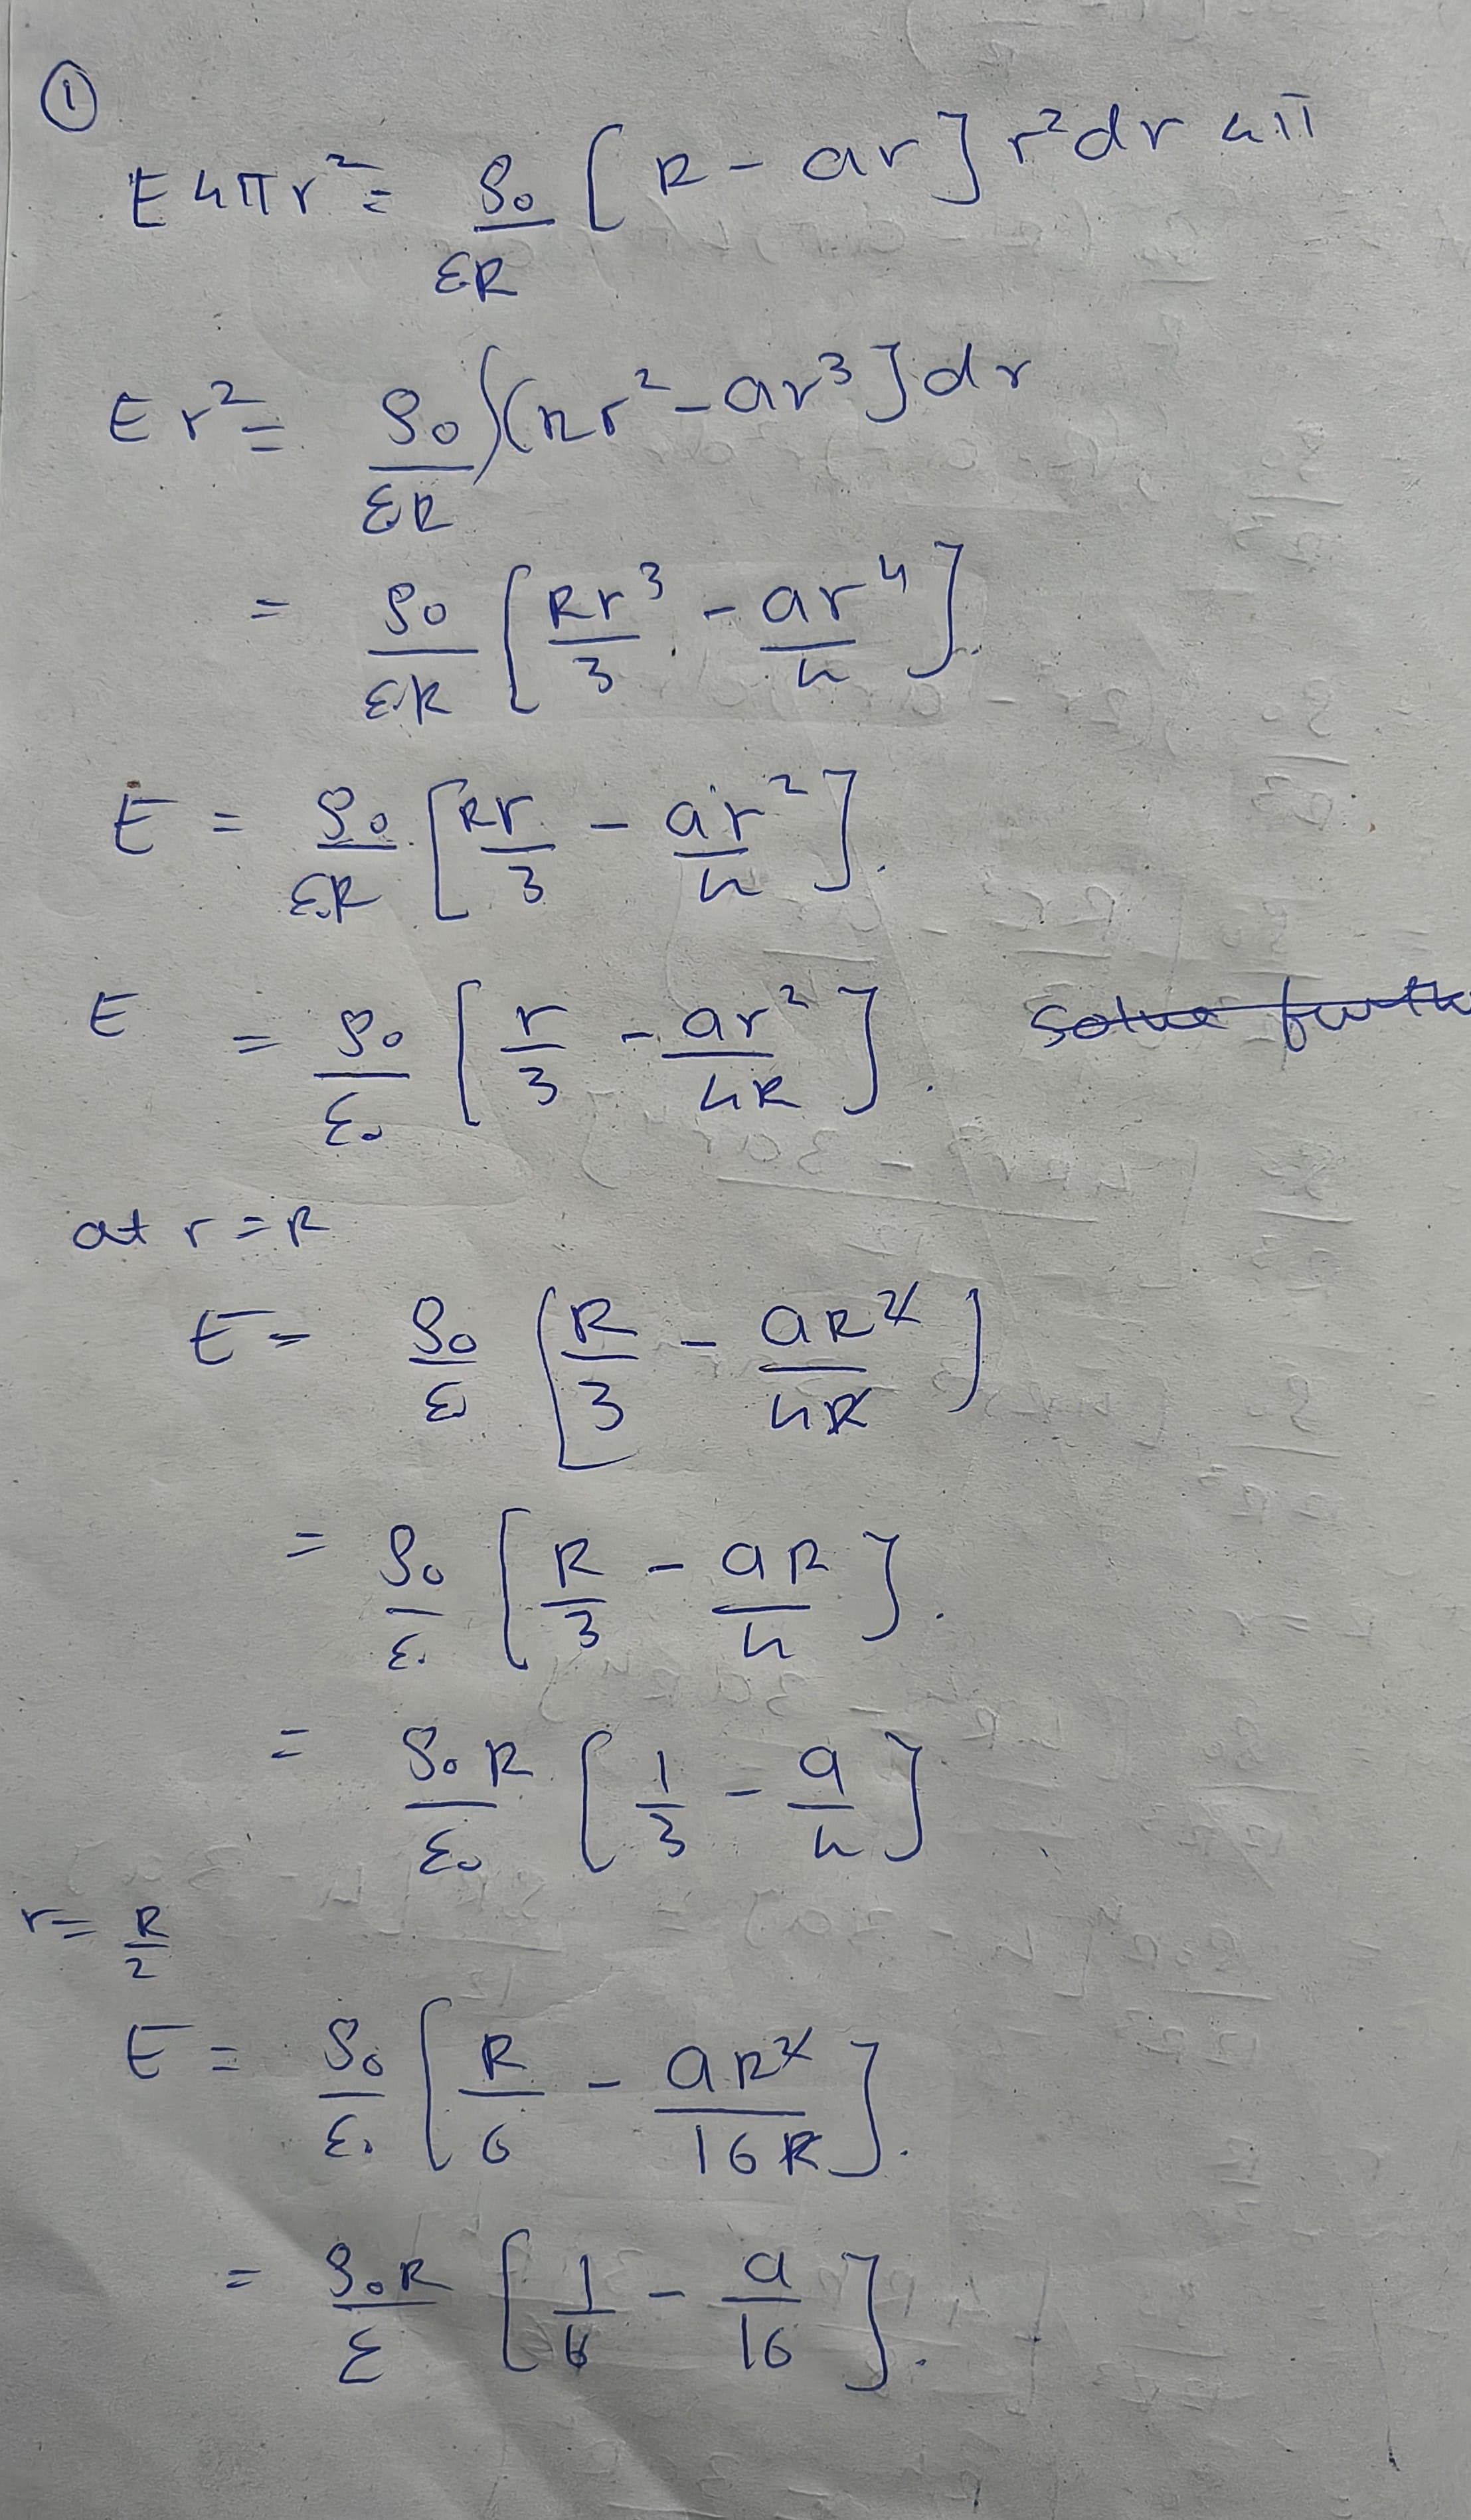 ①
E 4πr² = ρ₀/εR [R - ar] r²dr 4π
Er² = ρ₀/ε.R ∫(Rr² - ar³] dr
= ρ₀/ε.R [Rr³/3 - ar⁴/4].
E = ρ₀/ε.R [Rr/3 - ar²/4].
E = ρ₀/ε₀ [r/3 - ar²/4R].
at r = R
E = ρ₀/ε₀ [R/3 - aR²/4R]
= ρ₀/ε. [R/3 - aR/4].
= ρ₀R/ε₀ [1/3 - a/4]
r = R/2
E = ρ₀/ε₀ [R/6 - aR²/16R].
= ρ₀R/ε [1/6 - a/16].